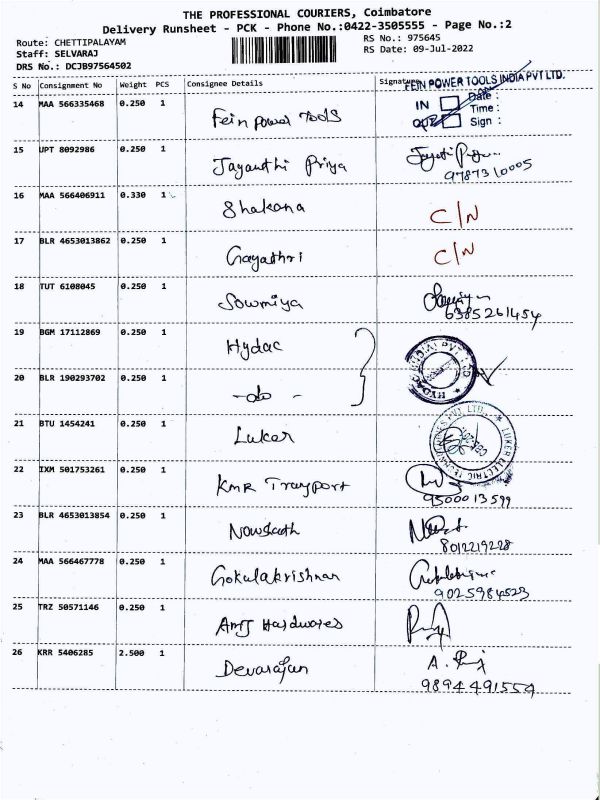 THE PROFESSIONAL COURIERS, Coimbatore
Delivery Runsheet - PCK - Phone No.:0422-3505555 - Page No.:2
Route: CHETTIPALAYAM
Staff: SELVARAJ
DRS No.: DCJB97564502
RS No.: 975645
RS Date: 09-Jul-2022
S No Consignment No Weight PCS Consignee Details Signature
FEIN POWER TOOLS INDIA PVT LTD.
IN Date :
Time :
OUT Sign :
14 MAA 566335468 0.250 1 Fein power Tools
15 UPT 8092986 0.250 1 Jayanthi Priya
9787310005
16 MAA 566406911 0.330 1 Shakana C/N
17 BLR 4653013862 0.250 1 Gayathri C/N
18 TUT 6108045 0.250 1 Sowmiya
6385261454
19 BGM 17112869 0.250 1 Hydac
20 BLR 190293702 0.250 1 -do-
21 BTU 1454241 0.250 1 Luker
22 IXM 501753261 0.250 1 KMR Transport
9500013599
23 BLR 4653013854 0.250 1 Nowshath
8012219228
24 MAA 566467778 0.250 1 Gokulakrishnan
9025984523
25 TRZ 50571146 0.250 1 Hardwares
26 KRR 5406285 2.500 1 Devarajan
9894491554